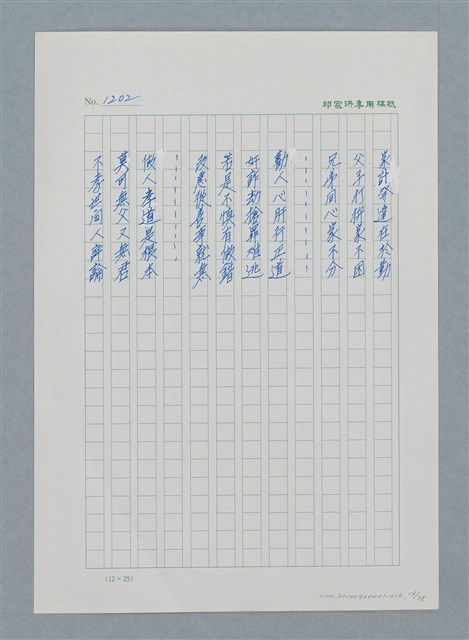 No. 1202
邱家洪專用稿紙
業計發達在於勤
父子打拚家不困
兄弟同心家不分
勸人心肝行正道
奸詐劫搶罪难逃
若是不慎有做錯
改惡從善事就無
做人孝道是根本
莫可無父又無君
不孝世间人評論
(12×25)